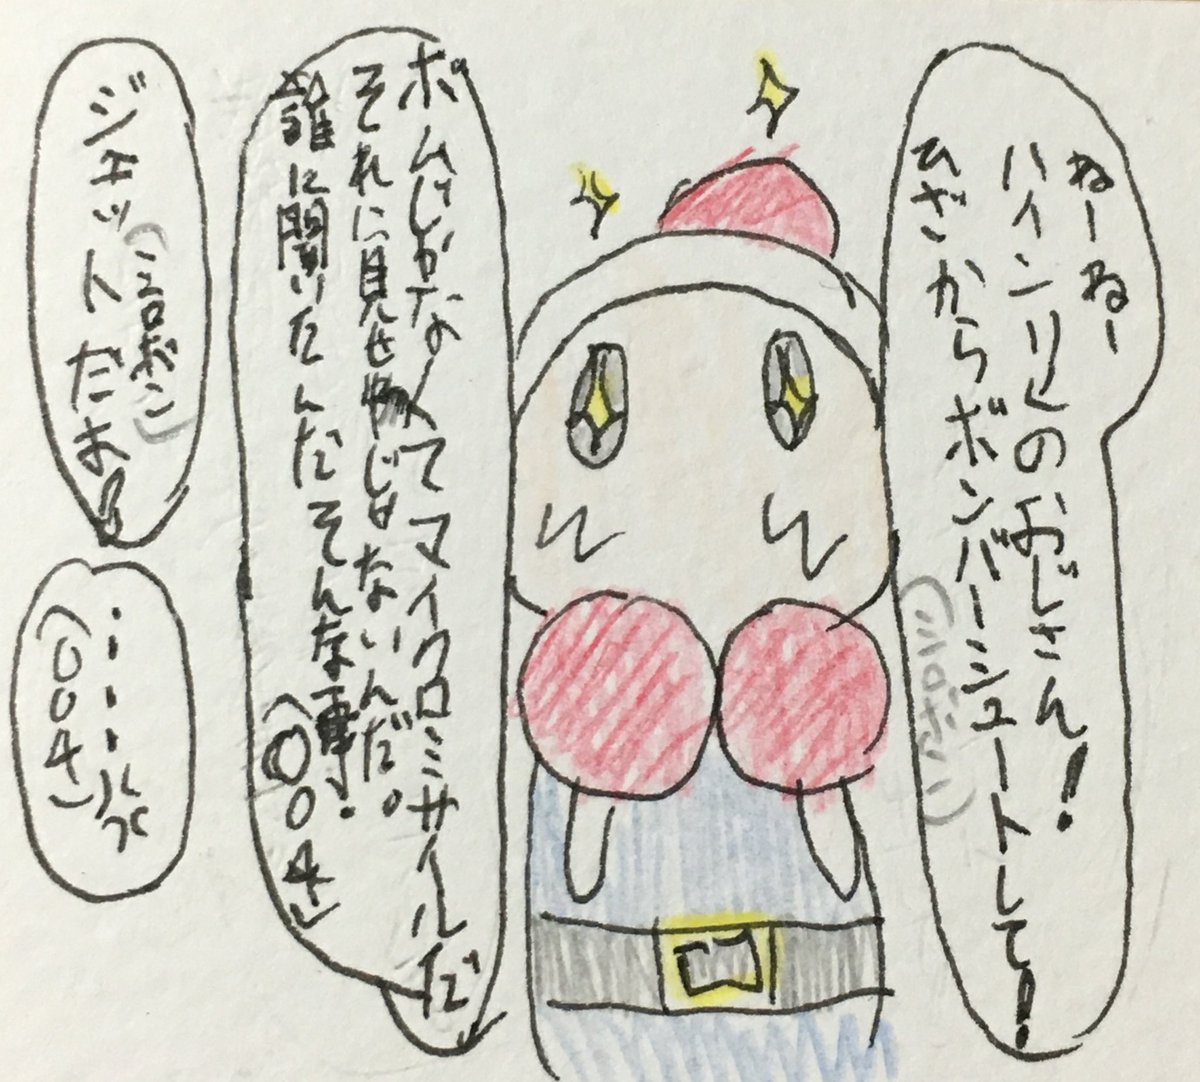 ねーねー
ハインリヒのおじさん!
ひざからボンバーシュートして!
(シロボン)
ボムじゃなくてマイクロミサイルだ
それに見せ物じゃないんだ。
誰に聞いたんだそんな事!
(004)
ジェットだよ
(シロボン)
(004)